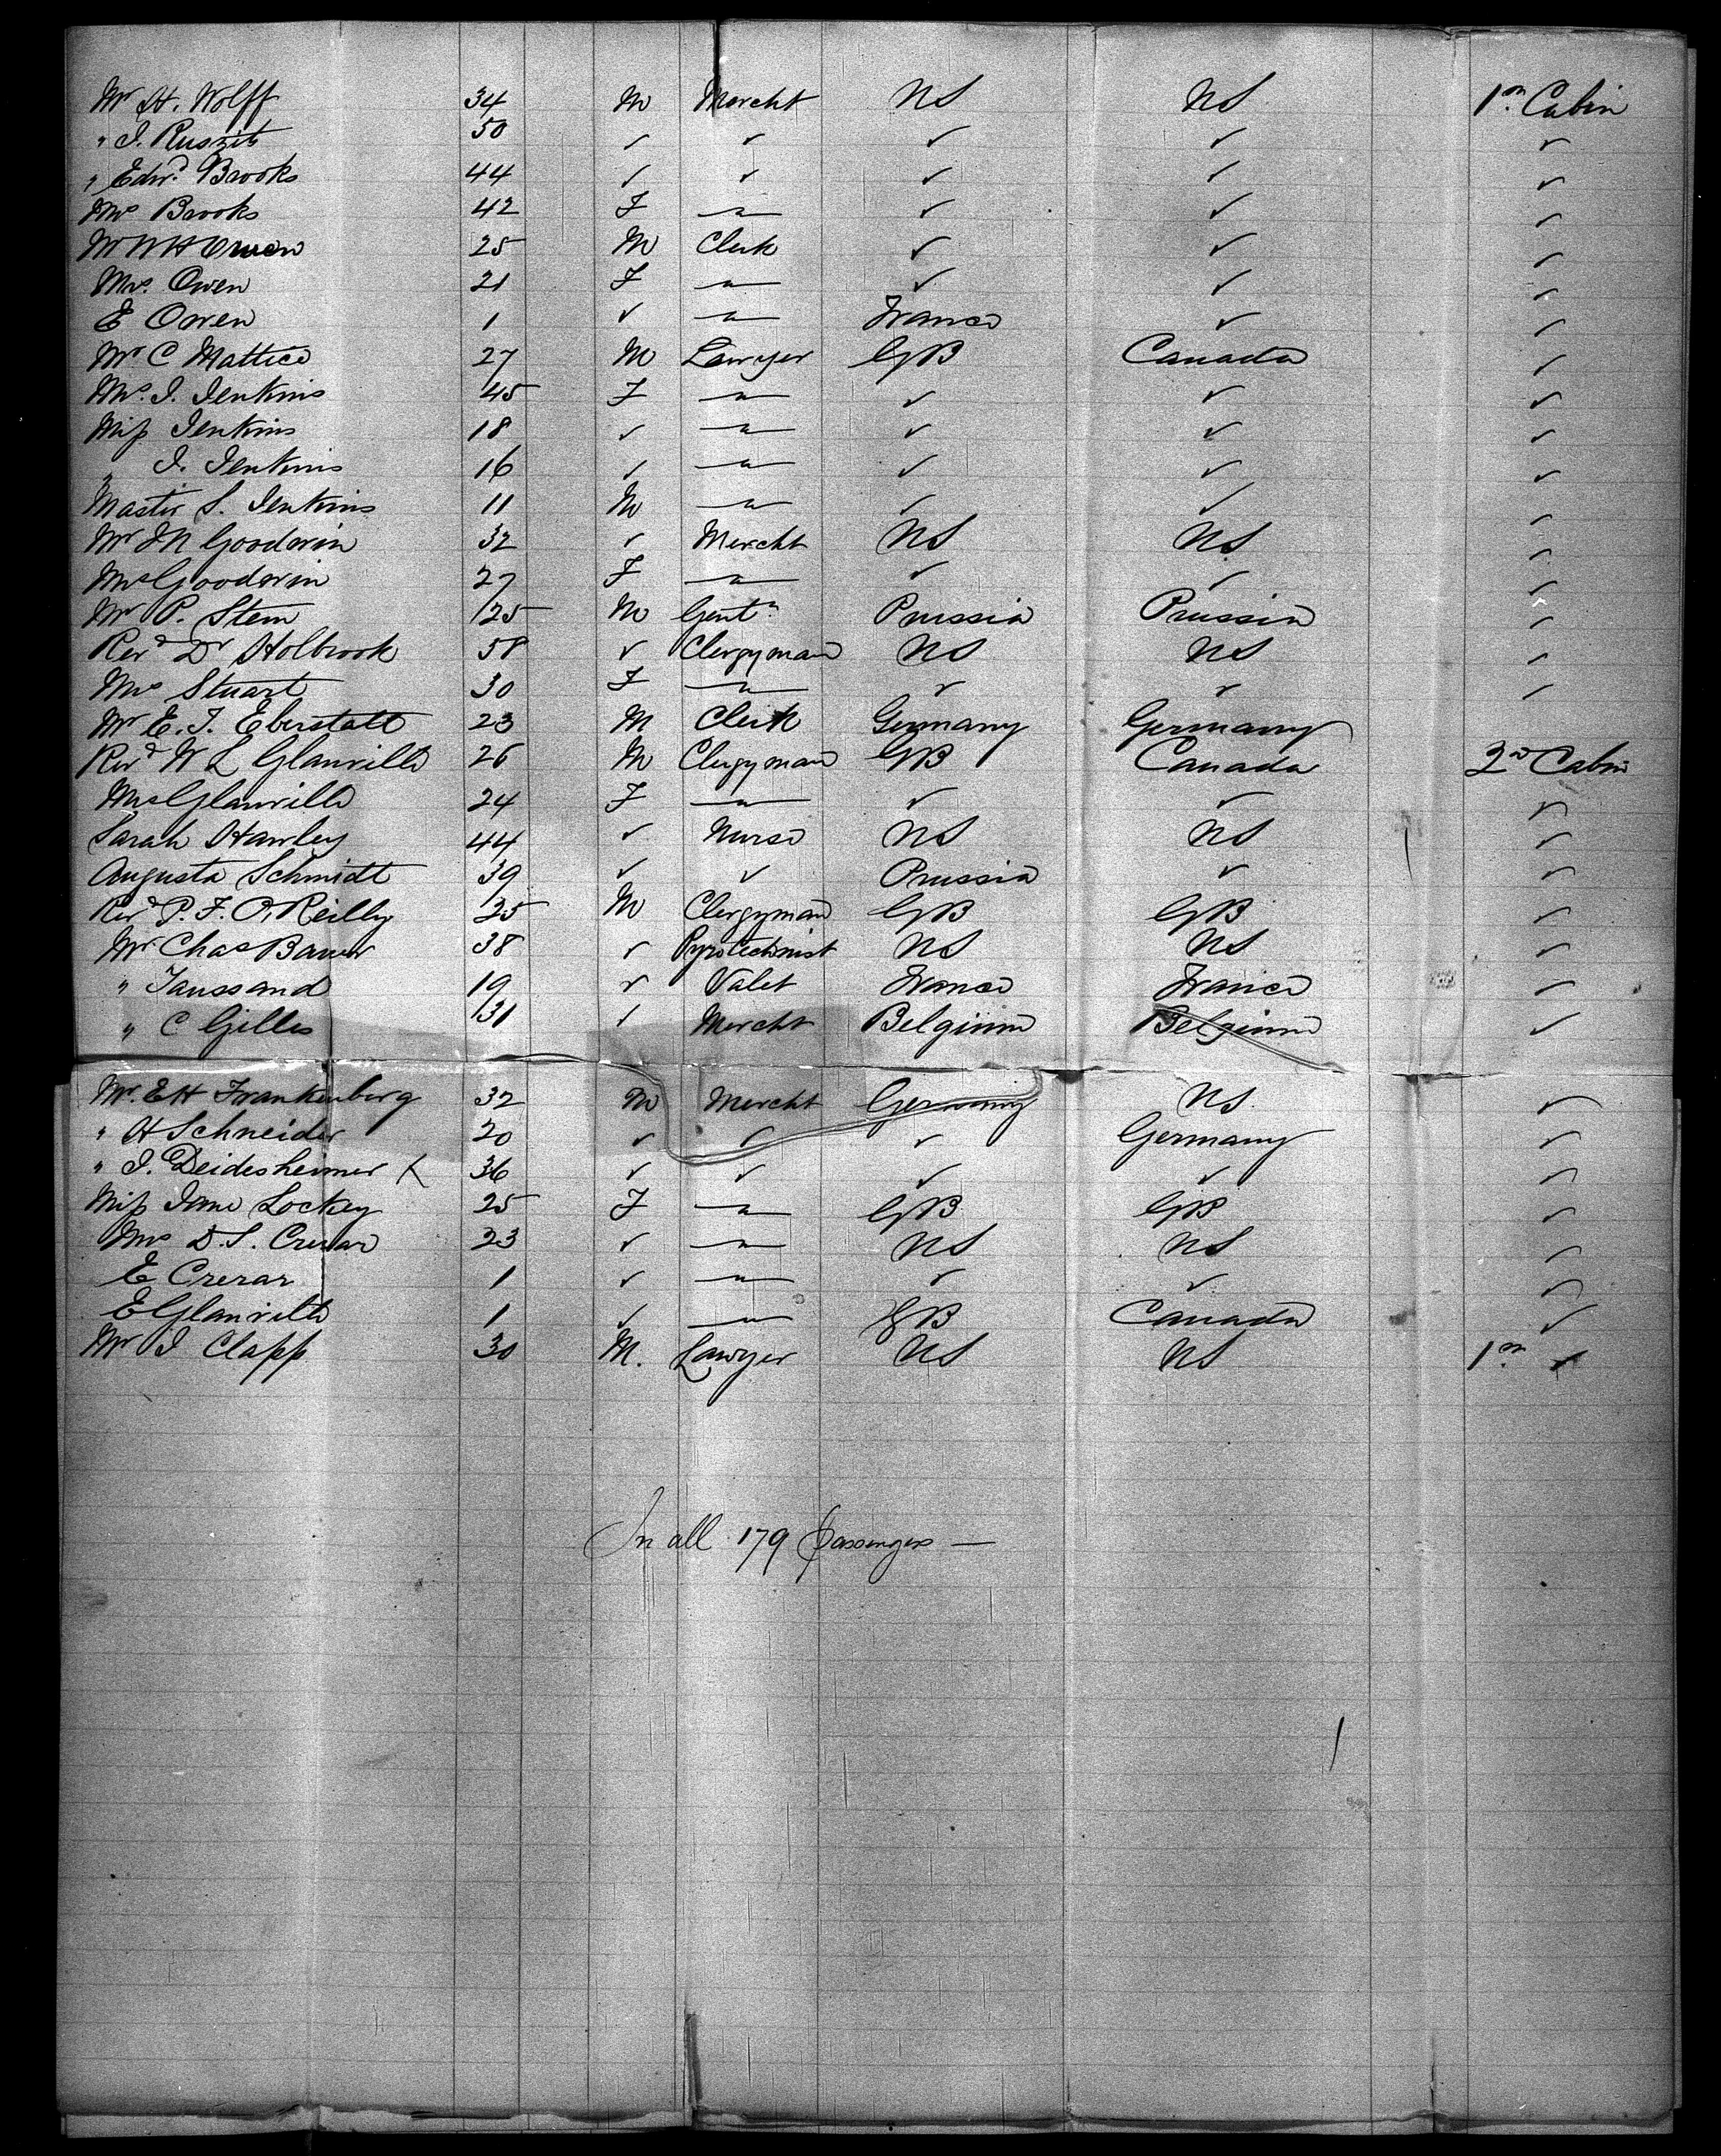 Mr H. Wolff 34 M Mercht US US 1st Cabin
" J. Ruszits 50 ✓ ✓ ✓ ✓ ✓
" Edwd Brooks 44 ✓ ✓ ✓ ✓ ✓
Mrs Brooks 42 F — " — ✓ ✓ ✓
Mr W H Owen 25 M Clerk ✓ ✓ ✓
Mrs. Owen 21 F — " — ✓ ✓ ✓
E Owen 1 ✓ — " — France ✓ ✓
Mr C Mattice 27 M Lawyer GB Canada ✓
Mrs. J. Jenkins 45 F — " — ✓ ✓ ✓
Miss Jenkins 18 ✓ — " — ✓ ✓ ✓
" J. Jenkins 16 ✓ — " — ✓ ✓ ✓
Master S. Jenkins 11 M — " — ✓ ✓ ✓
Mr J N Goodwin 32 ✓ Mercht US US ✓
Mrs Goodwin 27 F — " — ✓ ✓ ✓
Mr P. Stern 25 M Gentn Prussia Prussia ✓
Revd Dr Holbrook 58 ✓ Clergyman US US ✓
Mrs Stuart 30 F — " — ✓ ✓ ✓
Mr E. J. Eberstatt 23 M Clerk Germany Germany
Revd W L Glanville 26 M Clergyman GB Canada 2nd Cabin
Mrs Glanville 24 F — " — ✓ ✓ ✓
Sarah Hawley 44 ✓ Nurse US US ✓
Augusta Schmidt 39 ✓ ✓ Prussia ✓ ✓
Revd P. F. O'Reilly 25 M Clergyman GB GB ✓
Mr Chas Bauer 38 ✓ Pyrotechnist US US ✓
" Taussand 19 ✓ Valet France France ✓
" C Gilles 31 ✓ Mercht Belgium Belgium ✓
Mr. E H Frankenberg 32 M Mercht Germany US ✓
" H Schneider 20 ✓ ✓ ✓ Germany ✓
" J. Deidesheimer X 36 ✓ ✓ ✓ ✓ ✓
Miss Jane Lockey 25 F — " — GB GB ✓
Mrs D. S. Crerar 23 ✓ — " — US US ✓
E Crerar 1 ✓ — " — ✓ ✓ ✓
E Glanville 1 ✓ — " — GB Canada ✓
Mr J Clapp 30 M. Lawyer US US 1st ✓
In all 179 passengers —